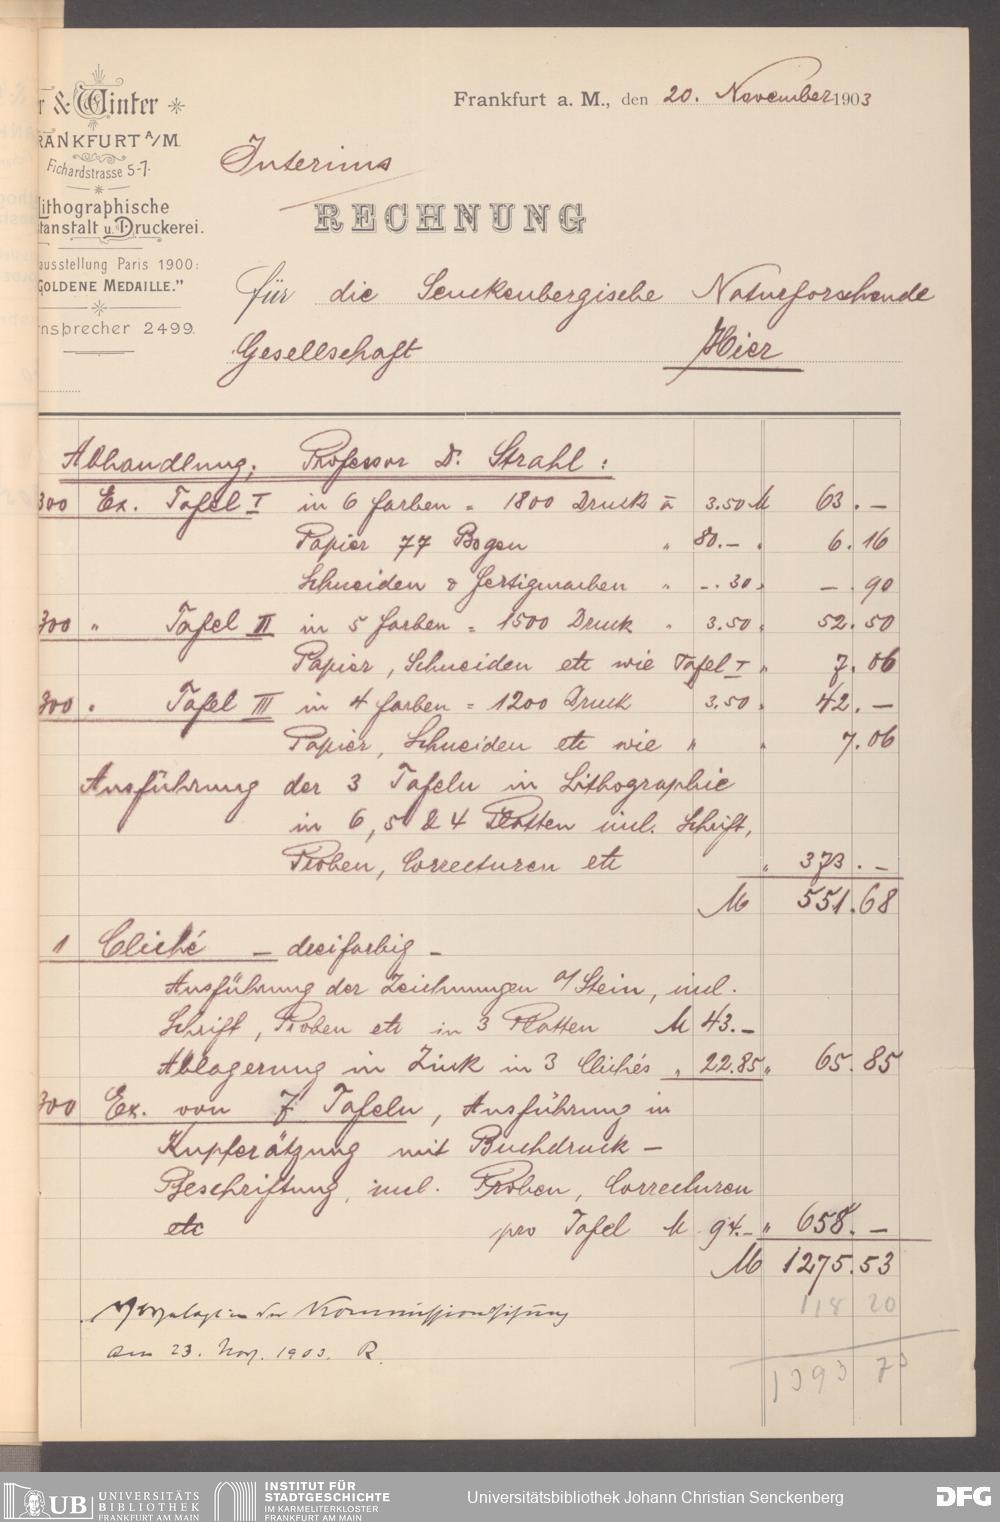 r & Winter
RANKFURT A/M.
Fichardstrasse 5-7.
Lithographische
tanstalt u. Druckerei.
ausstellung Paris 1900:
GOLDENE MEDAILLE."
rnsprecher 2499.
Frankfurt a. M., den 20. November 1903
Interims
RECHNUNG
für die Senckenbergische Naturforschende
Gesellschaft Hier
Abhandlung, Professor Dr. Strahl:
300 Ex. Tafel I in 6 farben = 1800 Druck à 3.50 M 63.—
Papier 77 Bogen " 80.— " 6.16
Schneiden & fertigmachen " —.30 " —.90
300 " Tafel II in 5 farben = 1500 Druck " 3.50 " 52.50
Papier, Schneiden etc wie Tafel I " 7.06
300 " Tafel III in 4 farben = 1200 Druck 3.50 " 42.—
Papier, Schneiden etc wie " " 7.06
Ausführung der 3 Tafeln in Lithographie
in 6, 5 & 4 Platten incl. Schrift,
Proben, Correcturen etc " 373.—
M 551.68
1 Cliché — dreifarbig —
Ausführung der Zeichnungen a/ Stein, incl.
Schrift, Proben etc in 3 Platten M 43.—
Ablagerung in Zink in 3 Clichés " 22.85 " 65.85
300 Ex. von 7 Tafeln, Ausführung in
Kupferätzung mit Buchdruck —
Beschriftung, incl. Proben, Correcturen
etc pro Tafel M 94.— " 658.—
M 1275.53
118 20
in der Kommissionssitzung
am 23. Nov. 1903. R.
1393 73
UB UNIVERSITÄTS
BIBLIOTHEK
FRANKFURT AM MAIN
INSTITUT FÜR
STADTGESCHICHTE
IM KARMELITERKLOSTER
FRANKFURT AM MAIN
Universitätsbibliothek Johann Christian Senckenberg
DFG